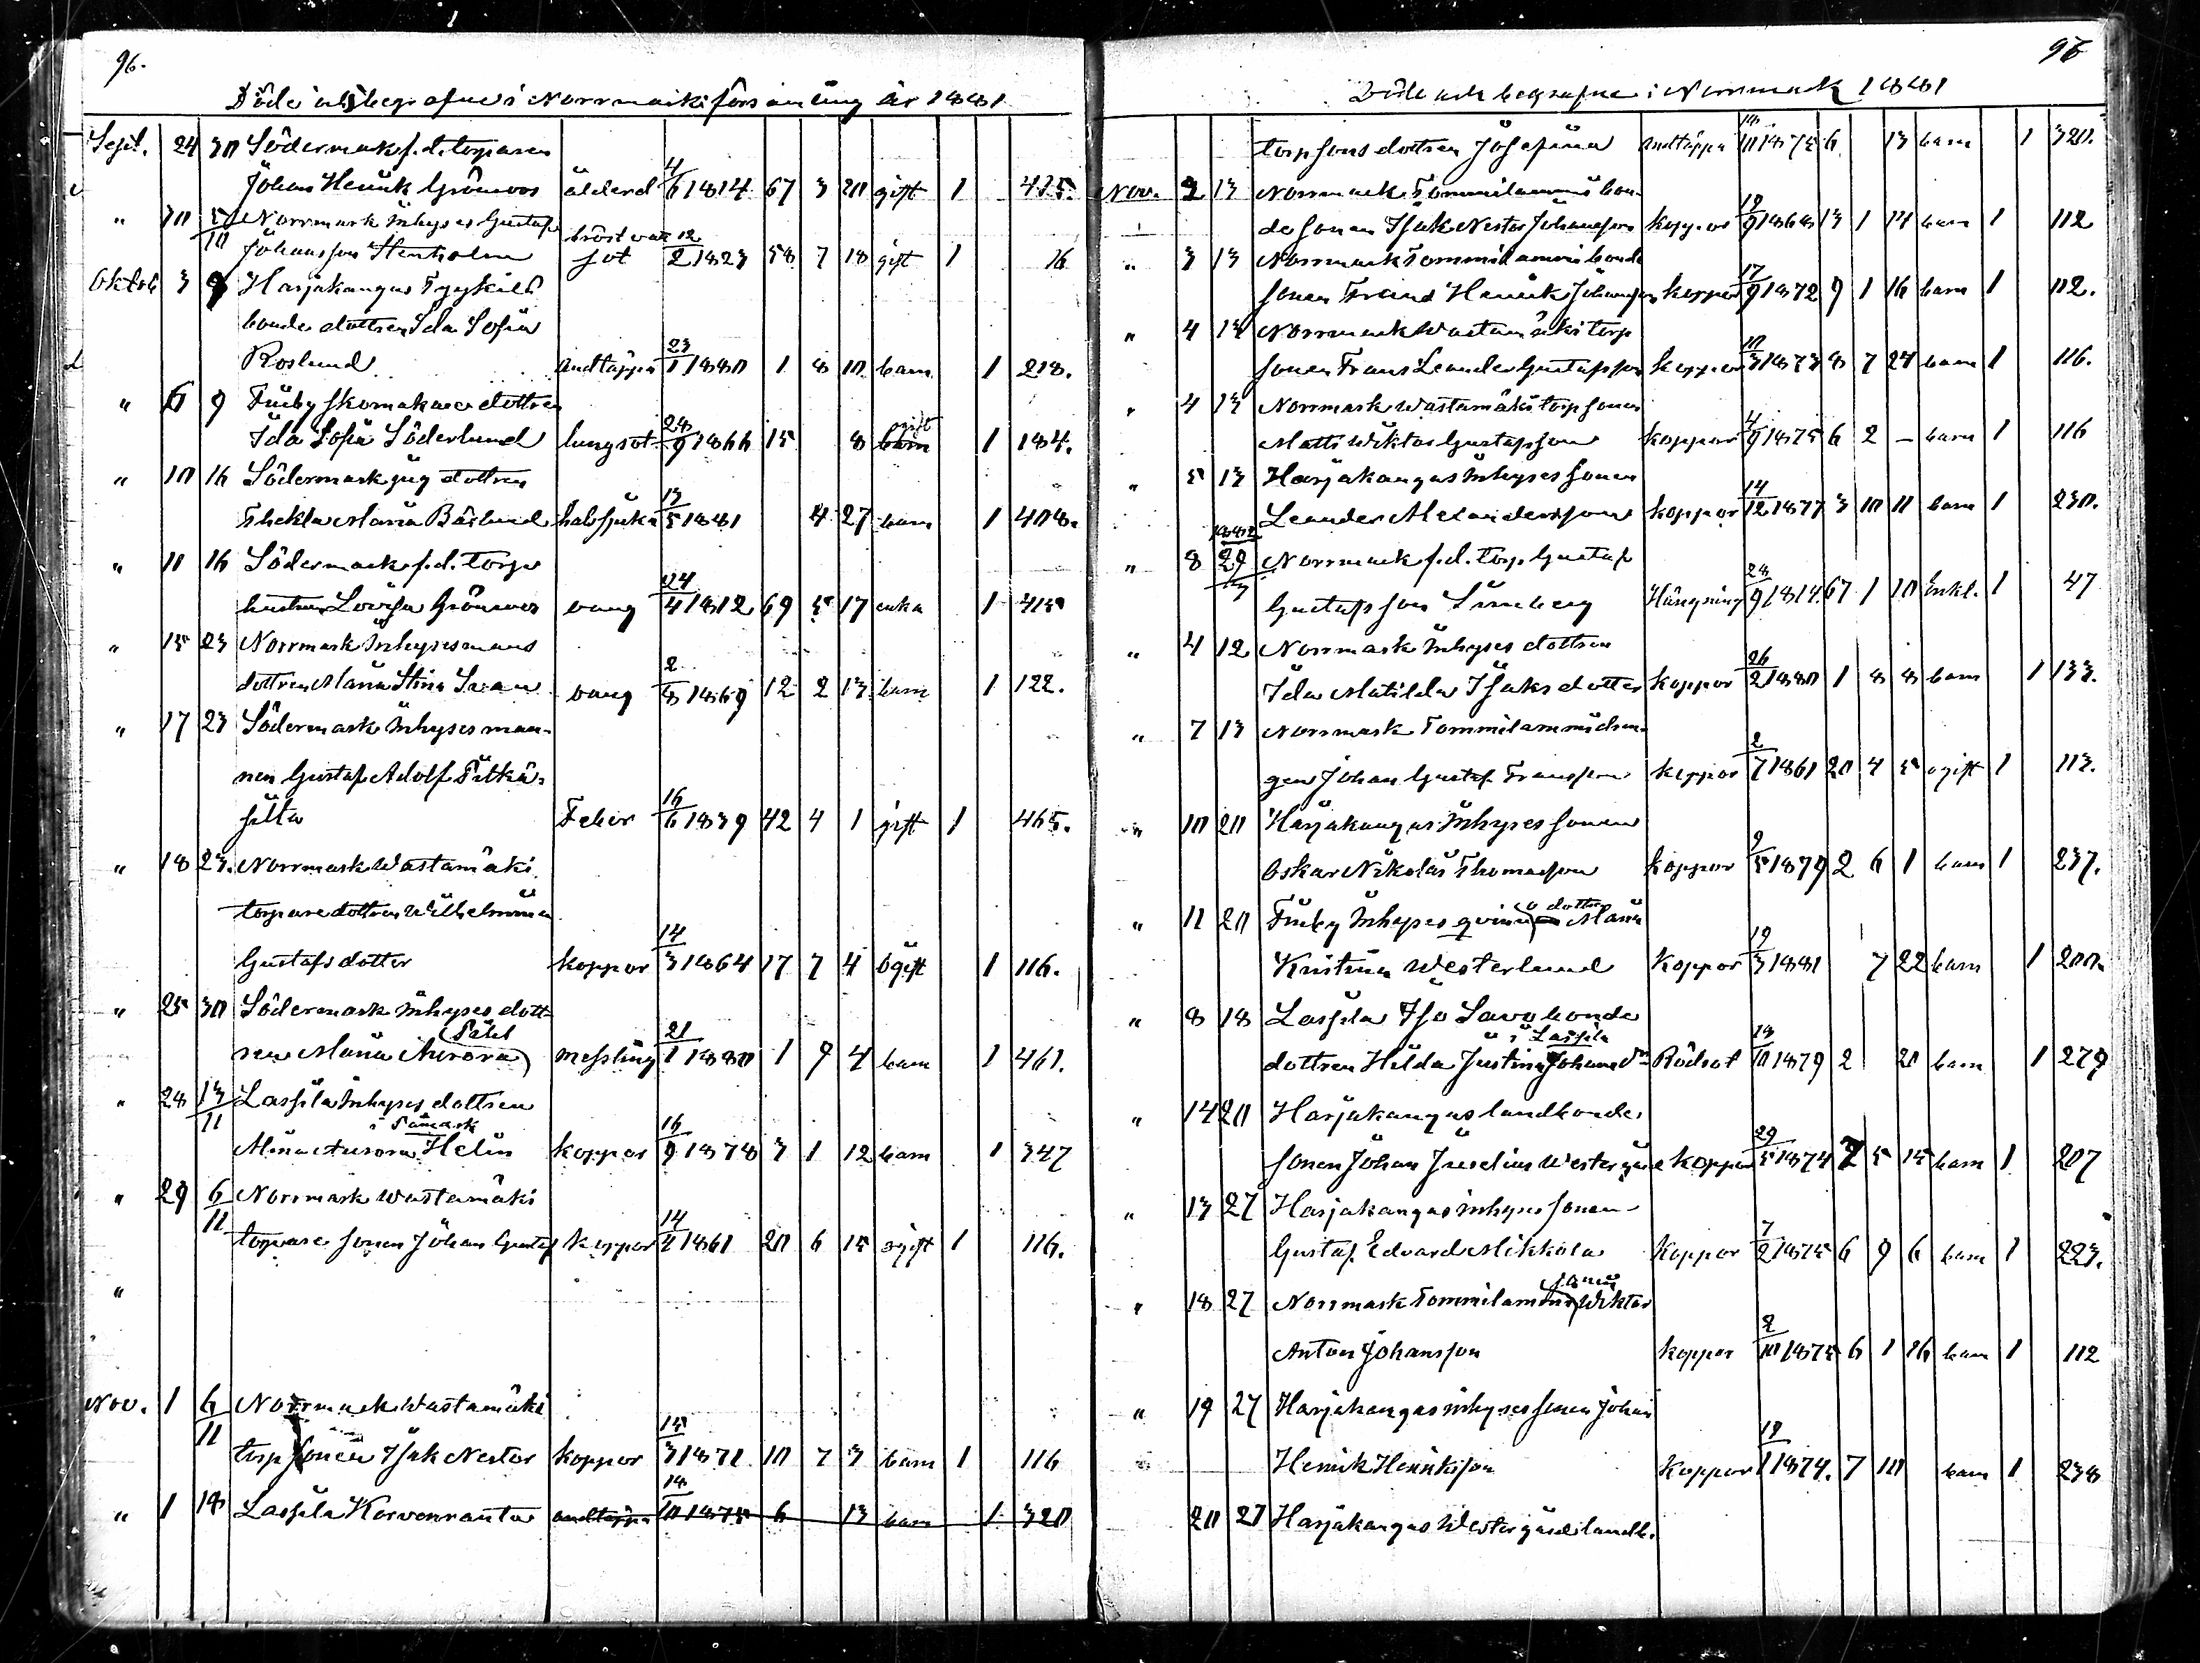 96.
Döde och begrafne i Norrmarks församling år 1881
Sept. 24 30 Södermark f.d. torparen
Johan Henrik Grönroos ålderd 4/6 1814 67 3 20 gift 1 425.
" 30 5/10 Norrmark Inhyses Gustaf
Johansson Stenholm bröst vat sot 12/2 1823 58 7 18 gift 1 16
Oktob 3 9 Harjakangas Tyykilä
bonde dottren Ida Sofia
Roslund andtäppa 23/1 1880 1 8 10 barn 1 218.
" 6 9 Finby skomakare dottren
Ida Sofia Söderlund lungsot 28/9 1866 15 8 ogift barn 1 184.
" 10 16 Södermark pig dottren
Thekla Maria Bärlund halssjuka 13/5 1881 4 27 barn 1 408.
" 11 16 Södermark f.d. torp
hustrun Lovisa Grönroos 24/4 1812 69 5 17 enka 1
" 15 23 Norrmark Inhysesmans
dottren Maria Stina 2/8 1869 12 2 13 barn 1 122.
" 17 23 Södermark Inhyses man-
nen Gustaf Adolf Pitkä-
silta Feber 16/6 1839 42 4 1 gift 1 465.
" 18 23. Norrmark Wastamäki
torpare dottren Wilhelmina
Gustafsdotter koppor 14/3 1864 17 7 4 ogift 1 116.
" 25 30 Södermark Inhyses dott-
ren Maria Aurora messling 21/1 1880 1 9 4 barn 1 461.
" 28 13/11 Lassila Inhyses dottren
i Påmark
Mina Aurora Helin koppor 16/9 1878 3 1 12 barn 1 347
" 29 6/11 Norrmark Wastamäki
torpare sonen Johan Gustaf koppor 14/4 1861 20 6 15 ogift 1 116.
"
Nov. 1 6/11 Norrmark Wastamäki
torp sonen Isak Nestor koppor 15/3 1871 10 7 3 barn 1 116
" 1 18 Lassila Korvenranta andtäppa 18/10 1875 6 13 barn 1 320
96
Döde och begrafne i Norrmark 1881
torpsons dottren Josefina andtäppa 18/10 1875 6 13 barn 1 320.
Nov. 2 13 Norrmark Tommilammi bon-
de sonen Isak Nestor Johansson koppor 19/9 1868 13 1 14 barn 1 112
" 3 13 Norrmark Tommilammi bonde
sonen Frans Henrik Johansson koppor 17/9 1872 9 1 16 barn 1 112.
" 4 13 Norrmark Wastamäki torp
sonen Frans Leander Gustafsson koppor 10/3 1873 8 7 24 barn 1 116.
" 4 13 Norrmark Wastamäki torp sonen
Matts Wiktor Gustafsson koppor 4/9 1875 6 2 — barn 1 116
" 5 13 Harjakangas Inhyses sonen
Leander Alexandersson koppor 14/12 1877 3 10 11 barn 1 230.
" 8 1882 29/3 Norrmark f.d. torp. Gustaf
Gustafsson Hängning 28/9 1814 67 1 10 Enkl. 1 47
" 4 12 Norrmark Inhyses dottren
Ida Matilda Isaksdotter koppor 26/2 1880 1 8 8 barn 1 133.
" 7 13 Norrmark Tommilammi dren-
gen Johan Gustaf Fransson koppor 2/7 1861 20 4 5 ogift 1 113.
" 10 20 Harjakangas Inhyses sonen
Oskar Nikolai Thomasson koppor 9/5 1879 2 6 1 barn 1 237.
" 11 20 Finby Inhyses qvinno dotter Maria
Kristina Westerlund Koppor 19/3 1881 7 22 barn 1 200.
" 8 18 Lassila Iso Savo bonde
i Lassila
dottren Hilda Justina Johansdr Rödsot 18/10 1879 2 20 barn 1 279
" 14 20 Harjakangas landbonde
sonen Johan Juselius Westergård koppor 29/5 1874 7 5 15 barn 1 207
" 13 27 Harjakangas inhyses sonen
Gustaf Edvard Mikkola Koppor 7/2 1875 6 9 6 barn 1 223.
" 18 27 Norrmark Tommilammi sonen Wiktor
Anton Johansson koppor 2/10 1875 6 1 16 barn 1 112
" 19 27 Harjakangas inhyses sonen Johan
Henrik Henriksson Koppor 19/1 1874. 7 10 barn 1 238
20 27 Harjakangas Westergård landb.